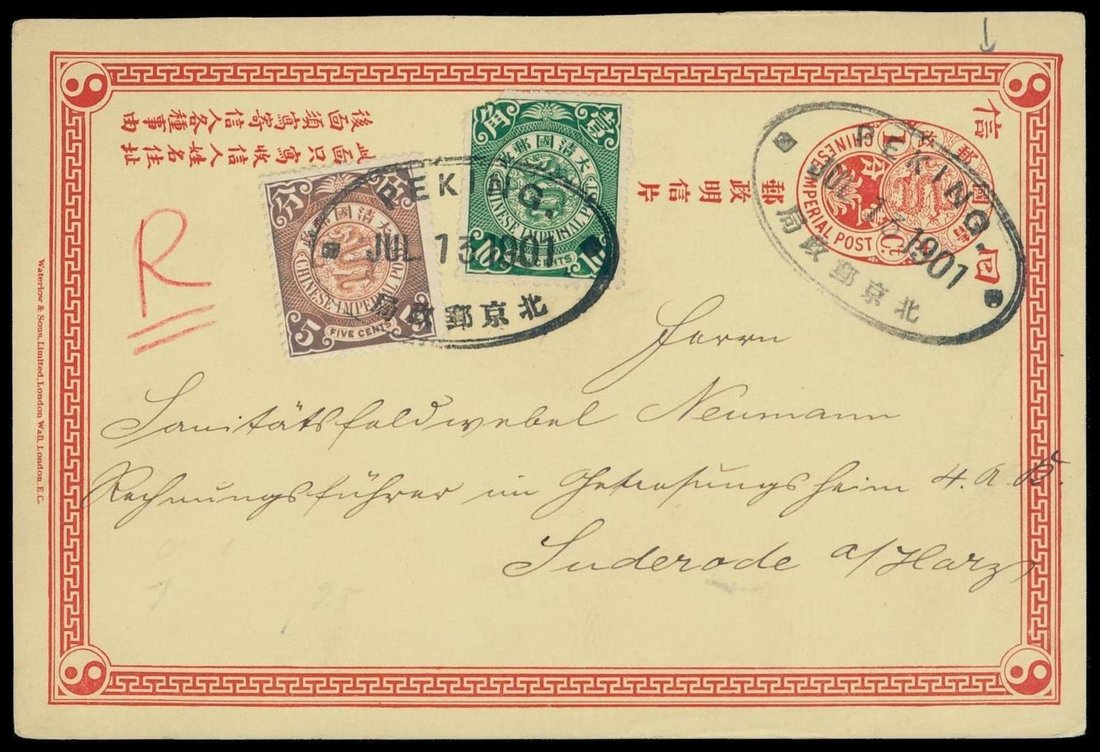 後面須寫寄信人各種事由
此面只寫收信人姓名住址
郵政明信片
信
回
大清國郵政
CHINESE IMPERIAL POST
1 C.
壹角
大清國郵政
CHINESE IMPERIAL POST
10 CENTS 10
分
大清國郵政
CHINESE IMPERIAL POST
5 FIVE CENTS 5
PEKING.
JUL 13 1901
北京郵政局
PEKING.
JUL 13 1901
北京郵政局
R
Herrn
Sanitätsfeldwebel Neumann
Rechnungsführer im Genesungsheim 4. A.
Suderode a/Harz
Waterlow & Sons, Limited, London Wall, London, E.C.